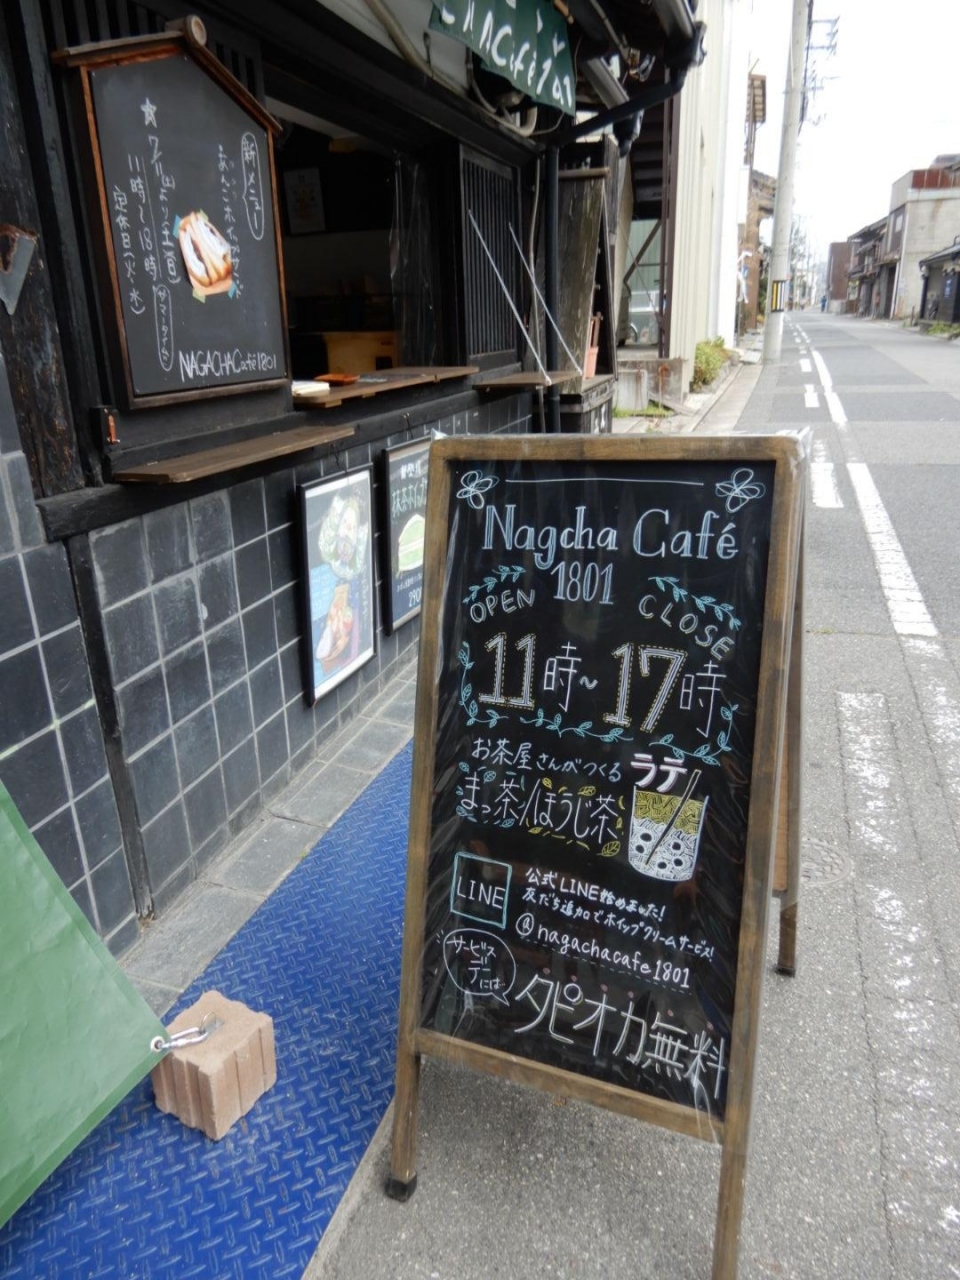 NACafé1801
新メニュー
あんこホイップサンド
★7/1(土)より9/30(日)
11時～18時
サマータイム
定休日(火・水)
NAGACHACafé1801
290
Nagcha Café
1801
OPEN
CLOSE
11時～17時
お茶屋さんがつくる
ラテ
まっ茶/ほうじ茶
LINE
公式LINE始めました!
友だち追加でホイップクリームサービス!
@nagachacafe1801
サービス
デー
には
タピオカ無料